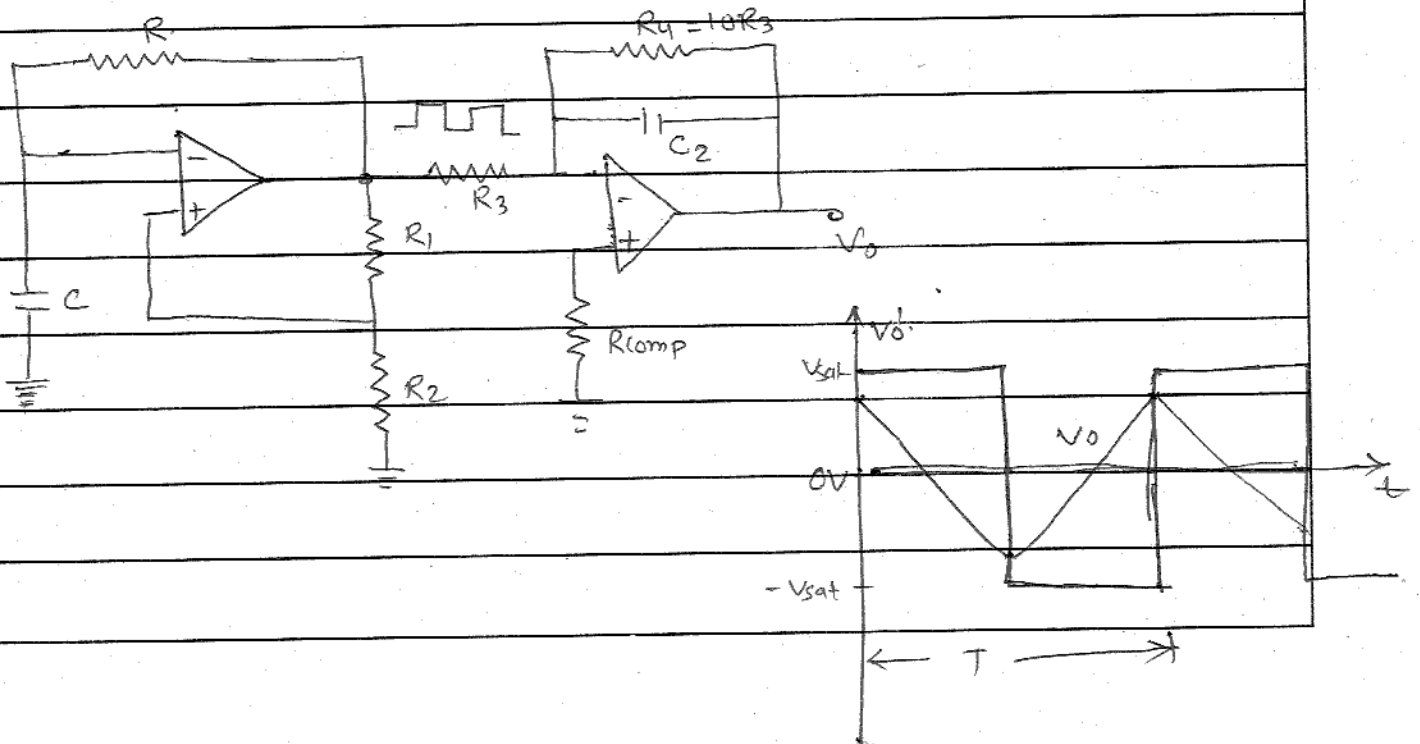 R
R4 = 10R3
C2
-
+
R3
R1
-
+
Vo
C
Rcomp
R2
Vo'
Vsat
Vo
0V
t
- Vsat
T